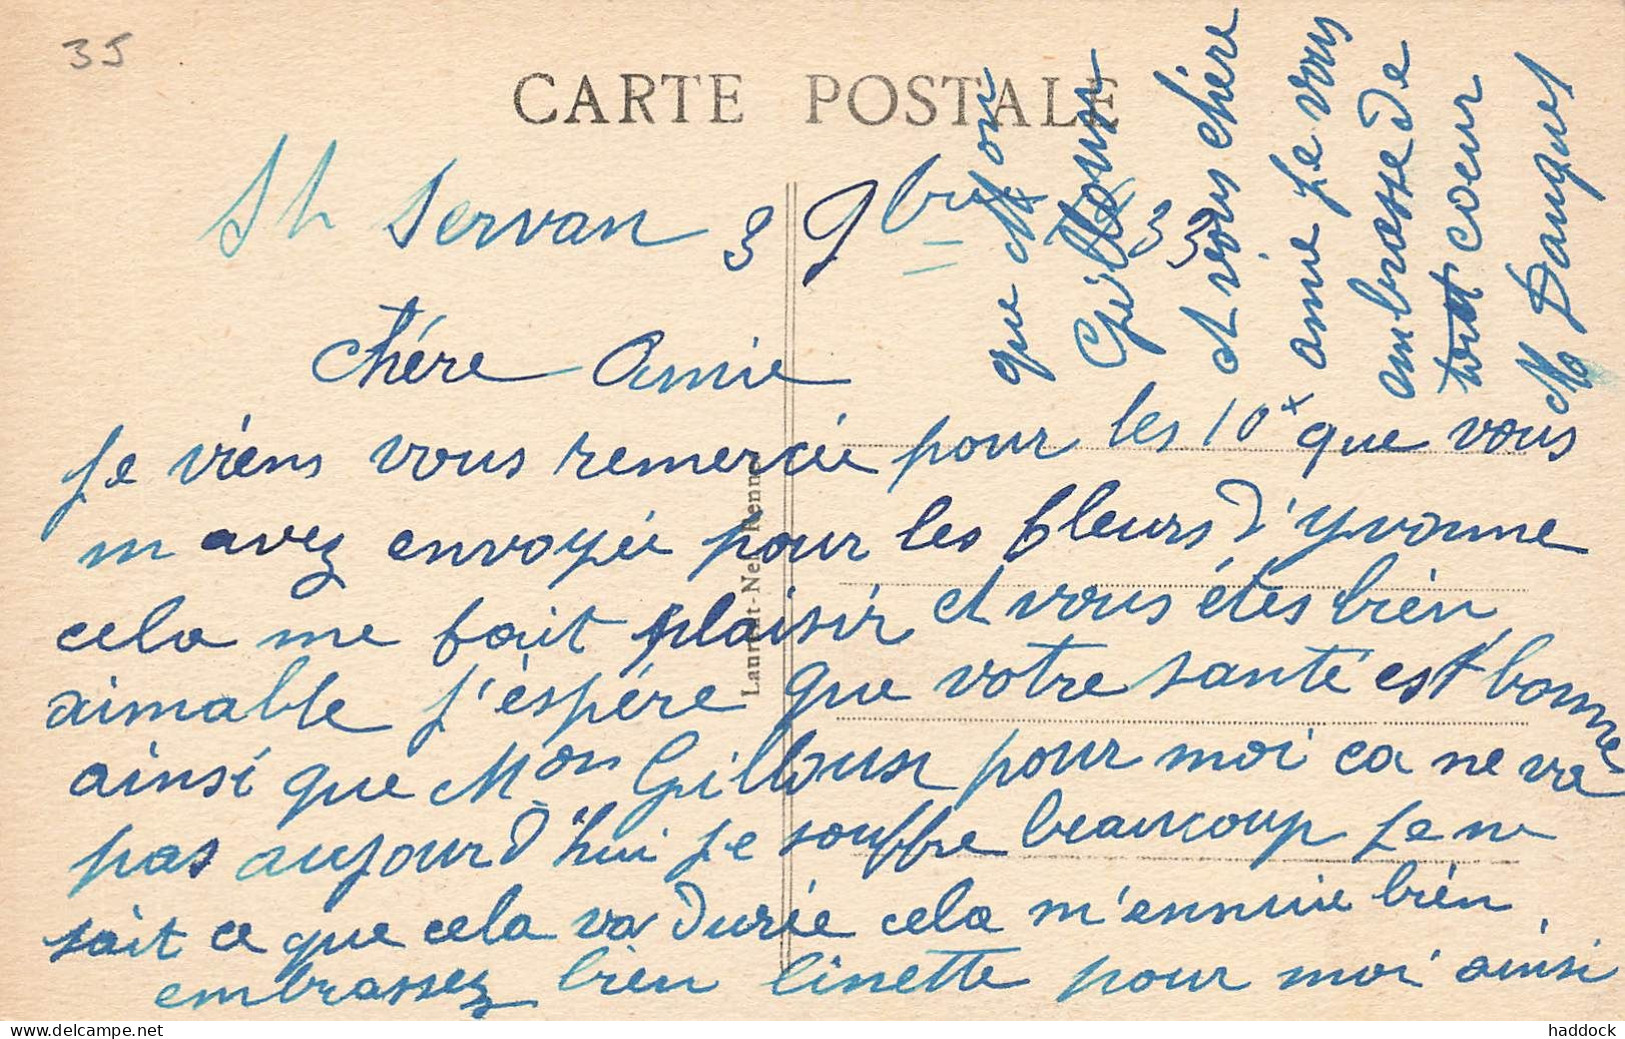 35
CARTE POSTALE
St Servan 3 9bre 33
Chére Amie
Je viens vous remerciée pour les 10x que vous
m avez envoyée pour les fleurs d'yvonne
cela me fait plaisir et vous étes bien
aimable j'éspére que votre santé est bonne
ainsi que Mon Gilloux pour moi ca ne va
pas aujourd'hui je souffre beaucoup je ne
sait ce que cela va durée cela m'ennuie bien.
embrassez bien linette pour moi ainsi
que Mon
Gilloux
et vous chère
amie Je vous
embrasse de
tout coeur
M Dauguet
Laurent-Nel Rennes
haddock